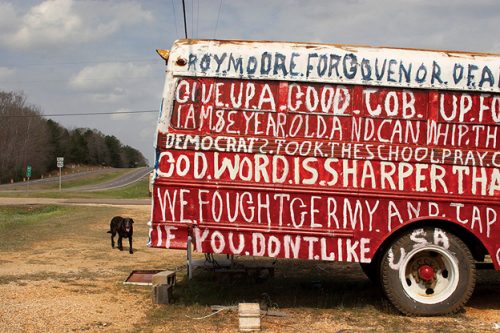 ROY.MOORE.FOR.GOVENOR.DEA
GIVE.UP.A.GOOD.JOB.UP.FO
I AM 82 YEAR OLD.AND.CAN WHIP.TH
DEMOCRATS.TOOK.THE SCHOOL PRAY
GOD.WORD.IS.SHARPER THA
WE FOUGHT GERMY.AND JAP
IF YOU.DON'T.LIKE
USA